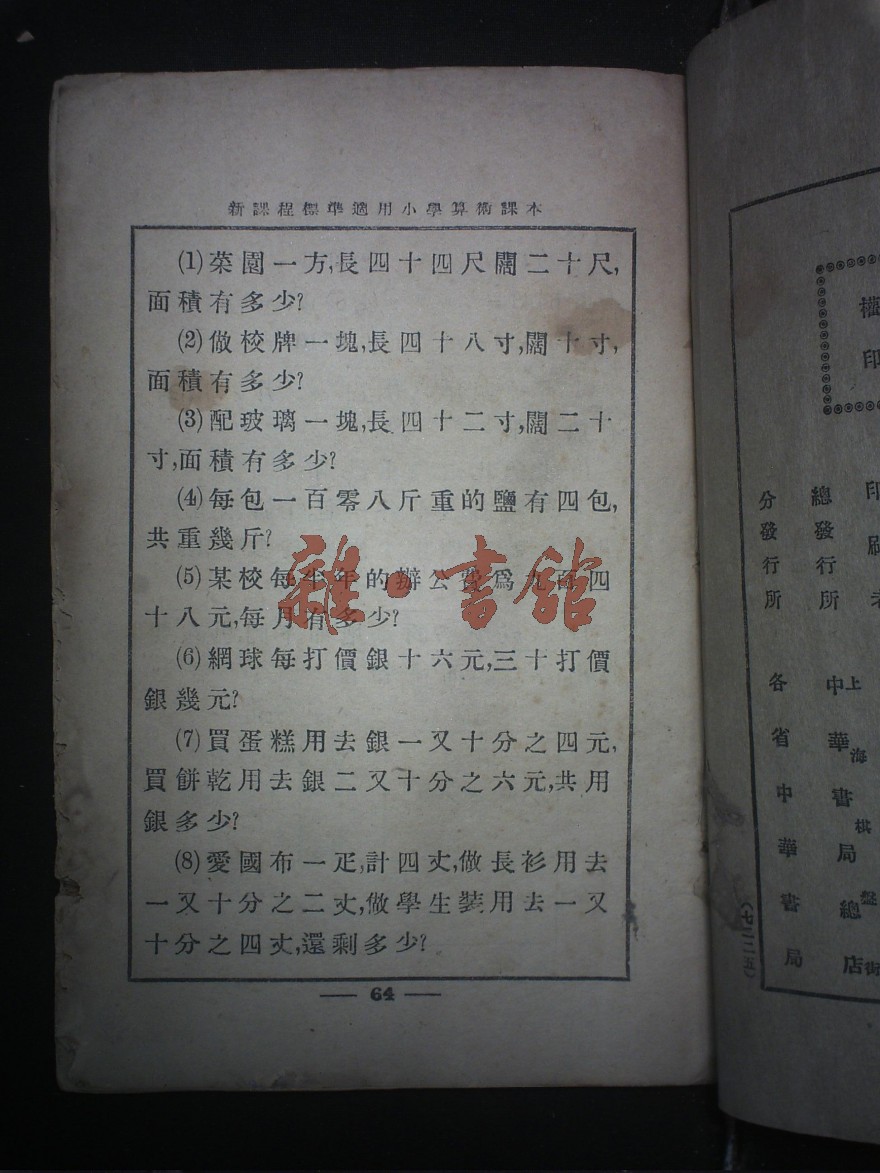 新課程標準適用小學算術課本
(1)菜園一方,長四十四尺闊二十尺,
面積有多少?
(2)做校牌一塊,長四十八寸,闊十寸,
面積有多少?
(3)配玻璃一塊,長四十二寸,闊二十
寸,面積有多少?
(4)每包一百零八斤重的鹽有四包,
共重幾斤?
(5)某校每半年的辦公費爲九百四
十八元,每月有多少?
(6)網球每打價銀十六元,三十打價
銀幾元?
(7)買蛋糕用去銀一又十分之四元,
買餅乾用去銀二又十分之六元,共用
銀多少?
(8)愛國布一疋,計四丈,做長衫用去
一又十分之二丈,做學生裝用去一又
十分之四丈,還剩多少?
— 64 —
雜·書館
權
印
印刷者
總發行所
上海棋盤街
中華書局總店
分發行所
各省中華書局